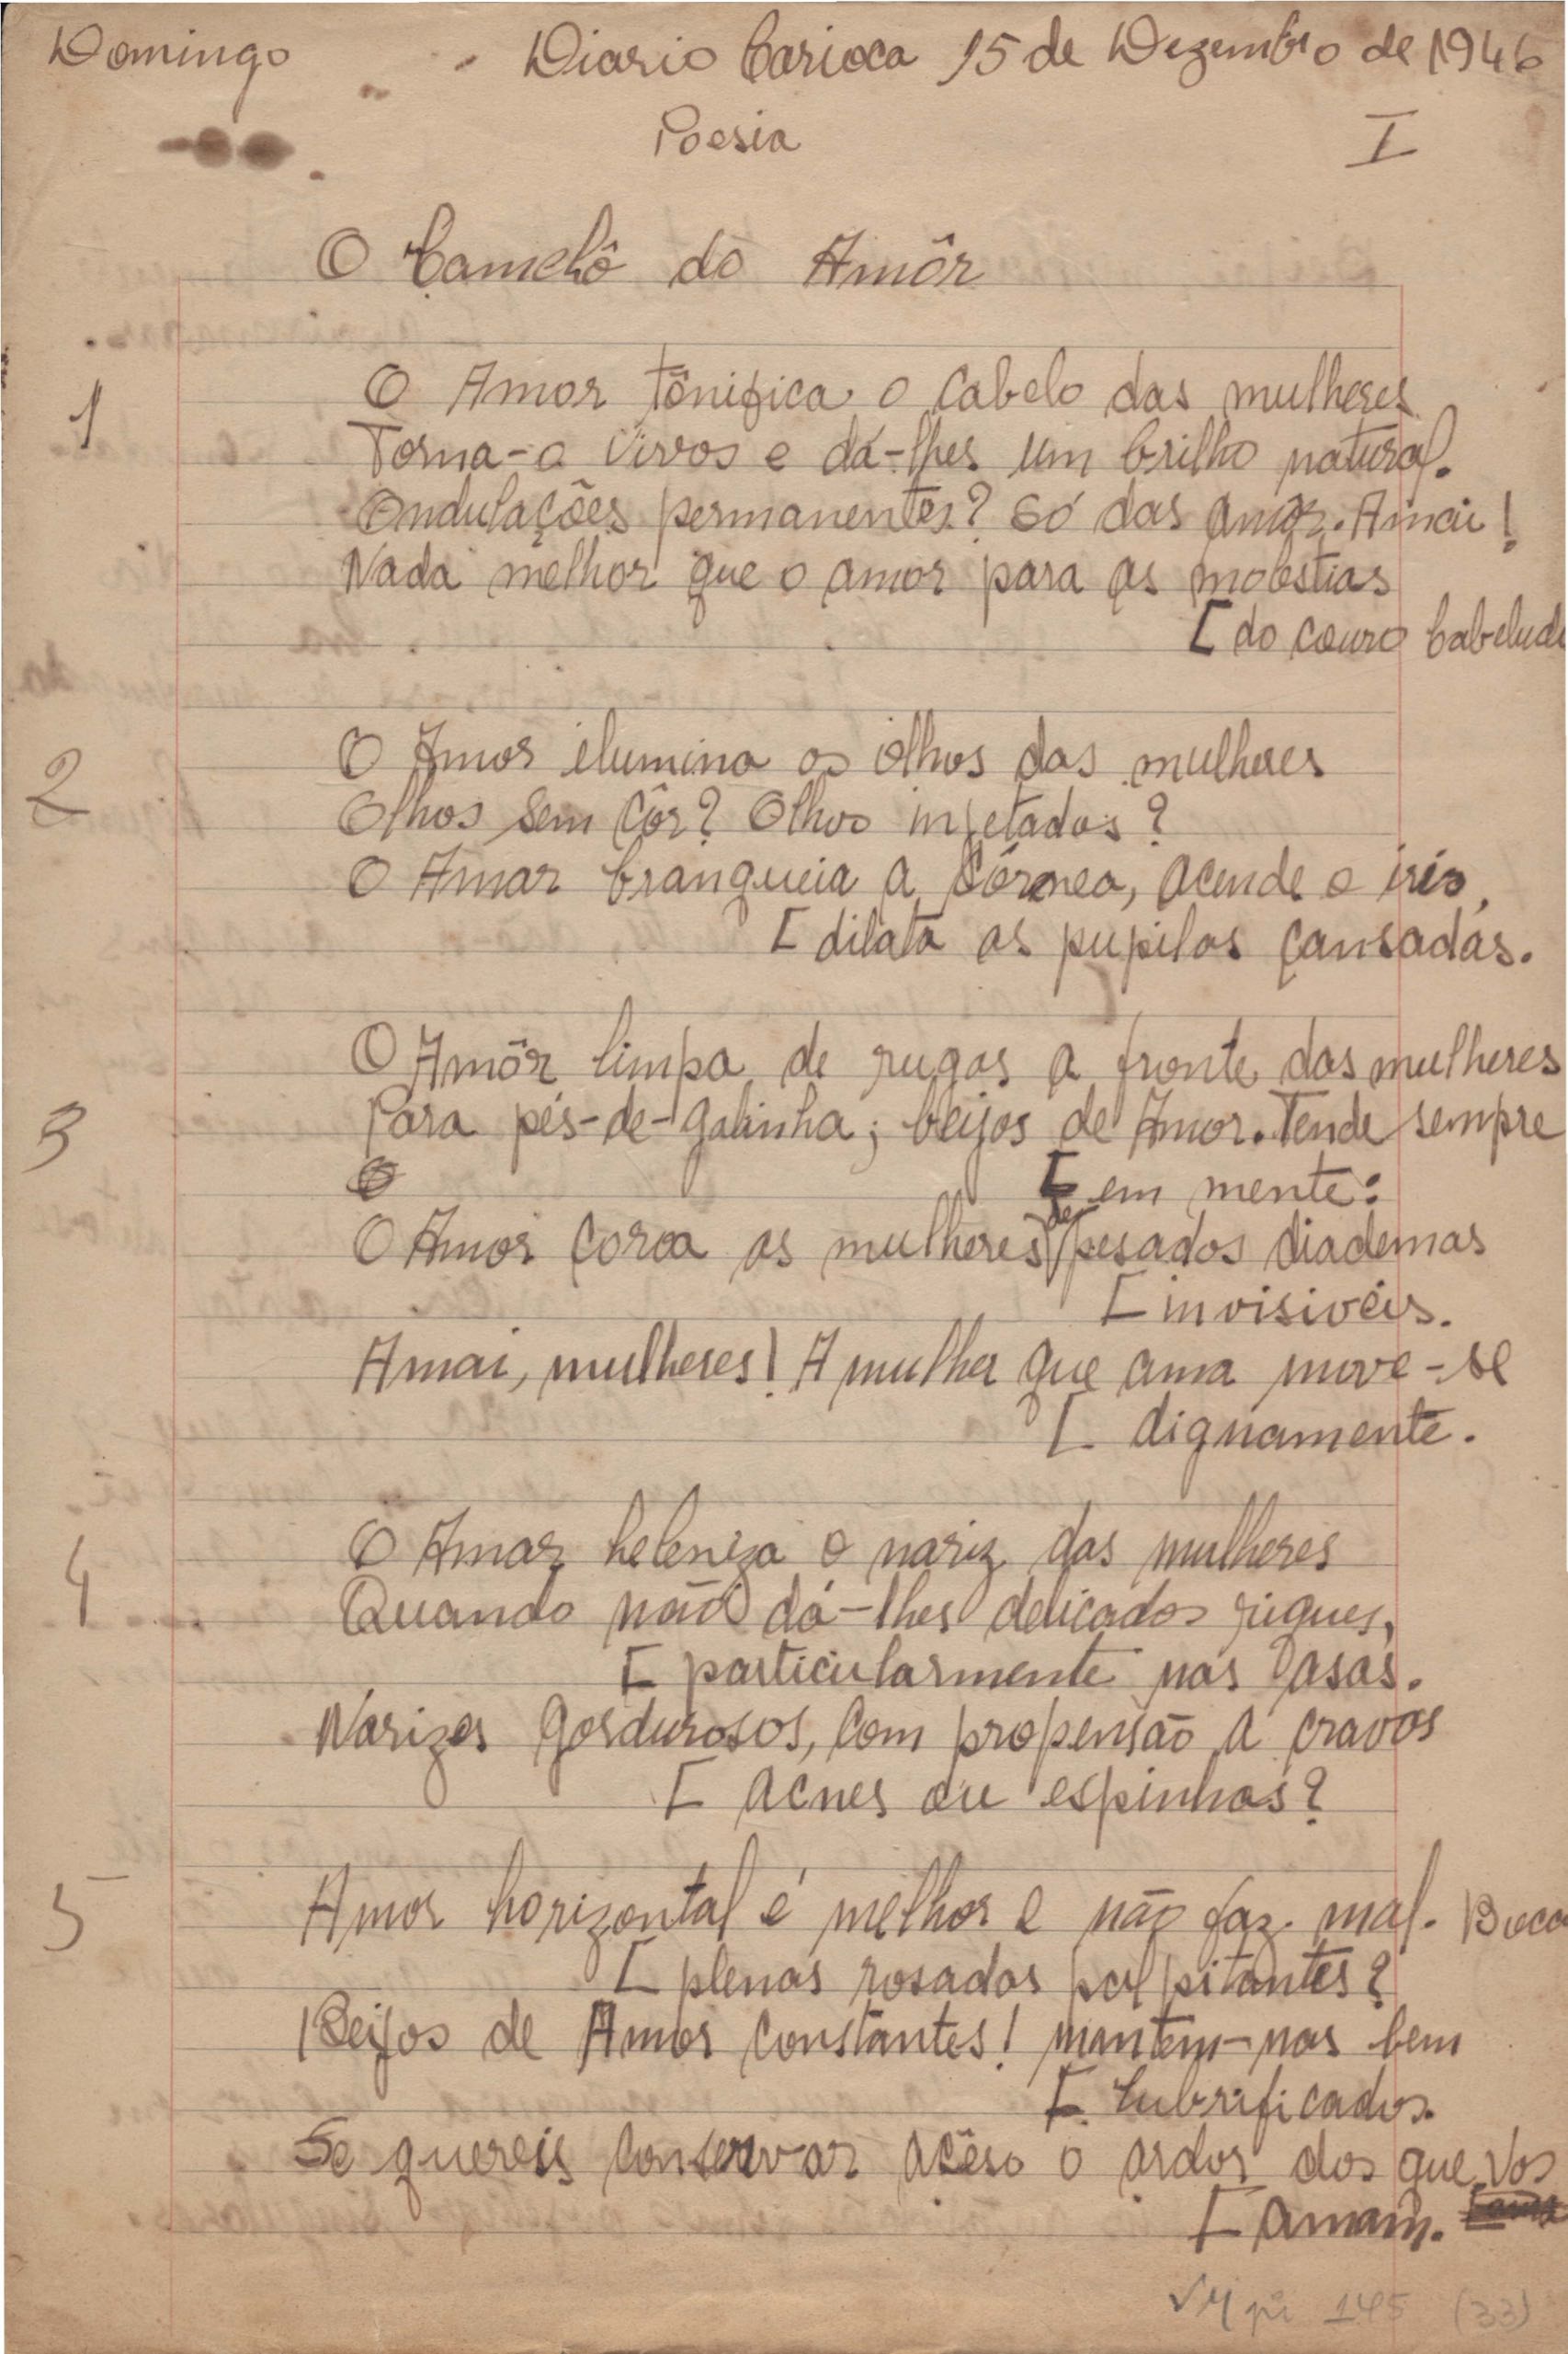 Domingo Diario Carioca 15 de Dezembro de 1946
Poesia I
O Camelô do Amôr
1
O Amor tônifica o cabelo das mulheres
Torna-o vivos e dá-lhes um brilho natural.
Ondulações permanentes? só das amor. Amai!
Nada melhor que o amor para as moléstias
[ do couro Cabelud
2
O Amor ilumina os olhos das mulheres
Olhos sem côr? Olhos injetados?
O Amor branqueia a córnea, acende o iris,
[ dilata as pupilas cansadas.
3
O Amôr limpa de rugas a fronte das mulheres
Para pés-de-galinha; beijos de Amor. Tende sempre
[ em mente:
O Amor coroa as mulheres de pesados diademas
[ invisivéis.
Amai, mulheres! A mulher que ama move-se
[ dignamente.
4
O Amor heleniza o nariz das mulheres
Quando não dá-lhes delicados riques,
[ particularmente nas asas.
Narizes gordurosos, com propensão a cravos
[ acnes ou espinhas?
5
Amor horizontal é melhor e não faz mal. Boca
[ plenas rosadas palpitantes?
Beijos de Amor constantes! mantem-nas bem
[ Lubrificados.
Se quereis conservar acêso o ardor dos que vos
[ amam.
145 (33)